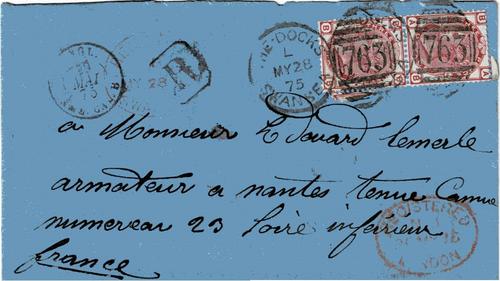 THE-DOCKS
L
MY 28
75
SWANSEA
763
763
R
MY 28
a Monsieur Edouard Lemerle
armateur a nantes tenue Camus
numereau 23 Loire inferieur
france
REGISTERED
LONDON